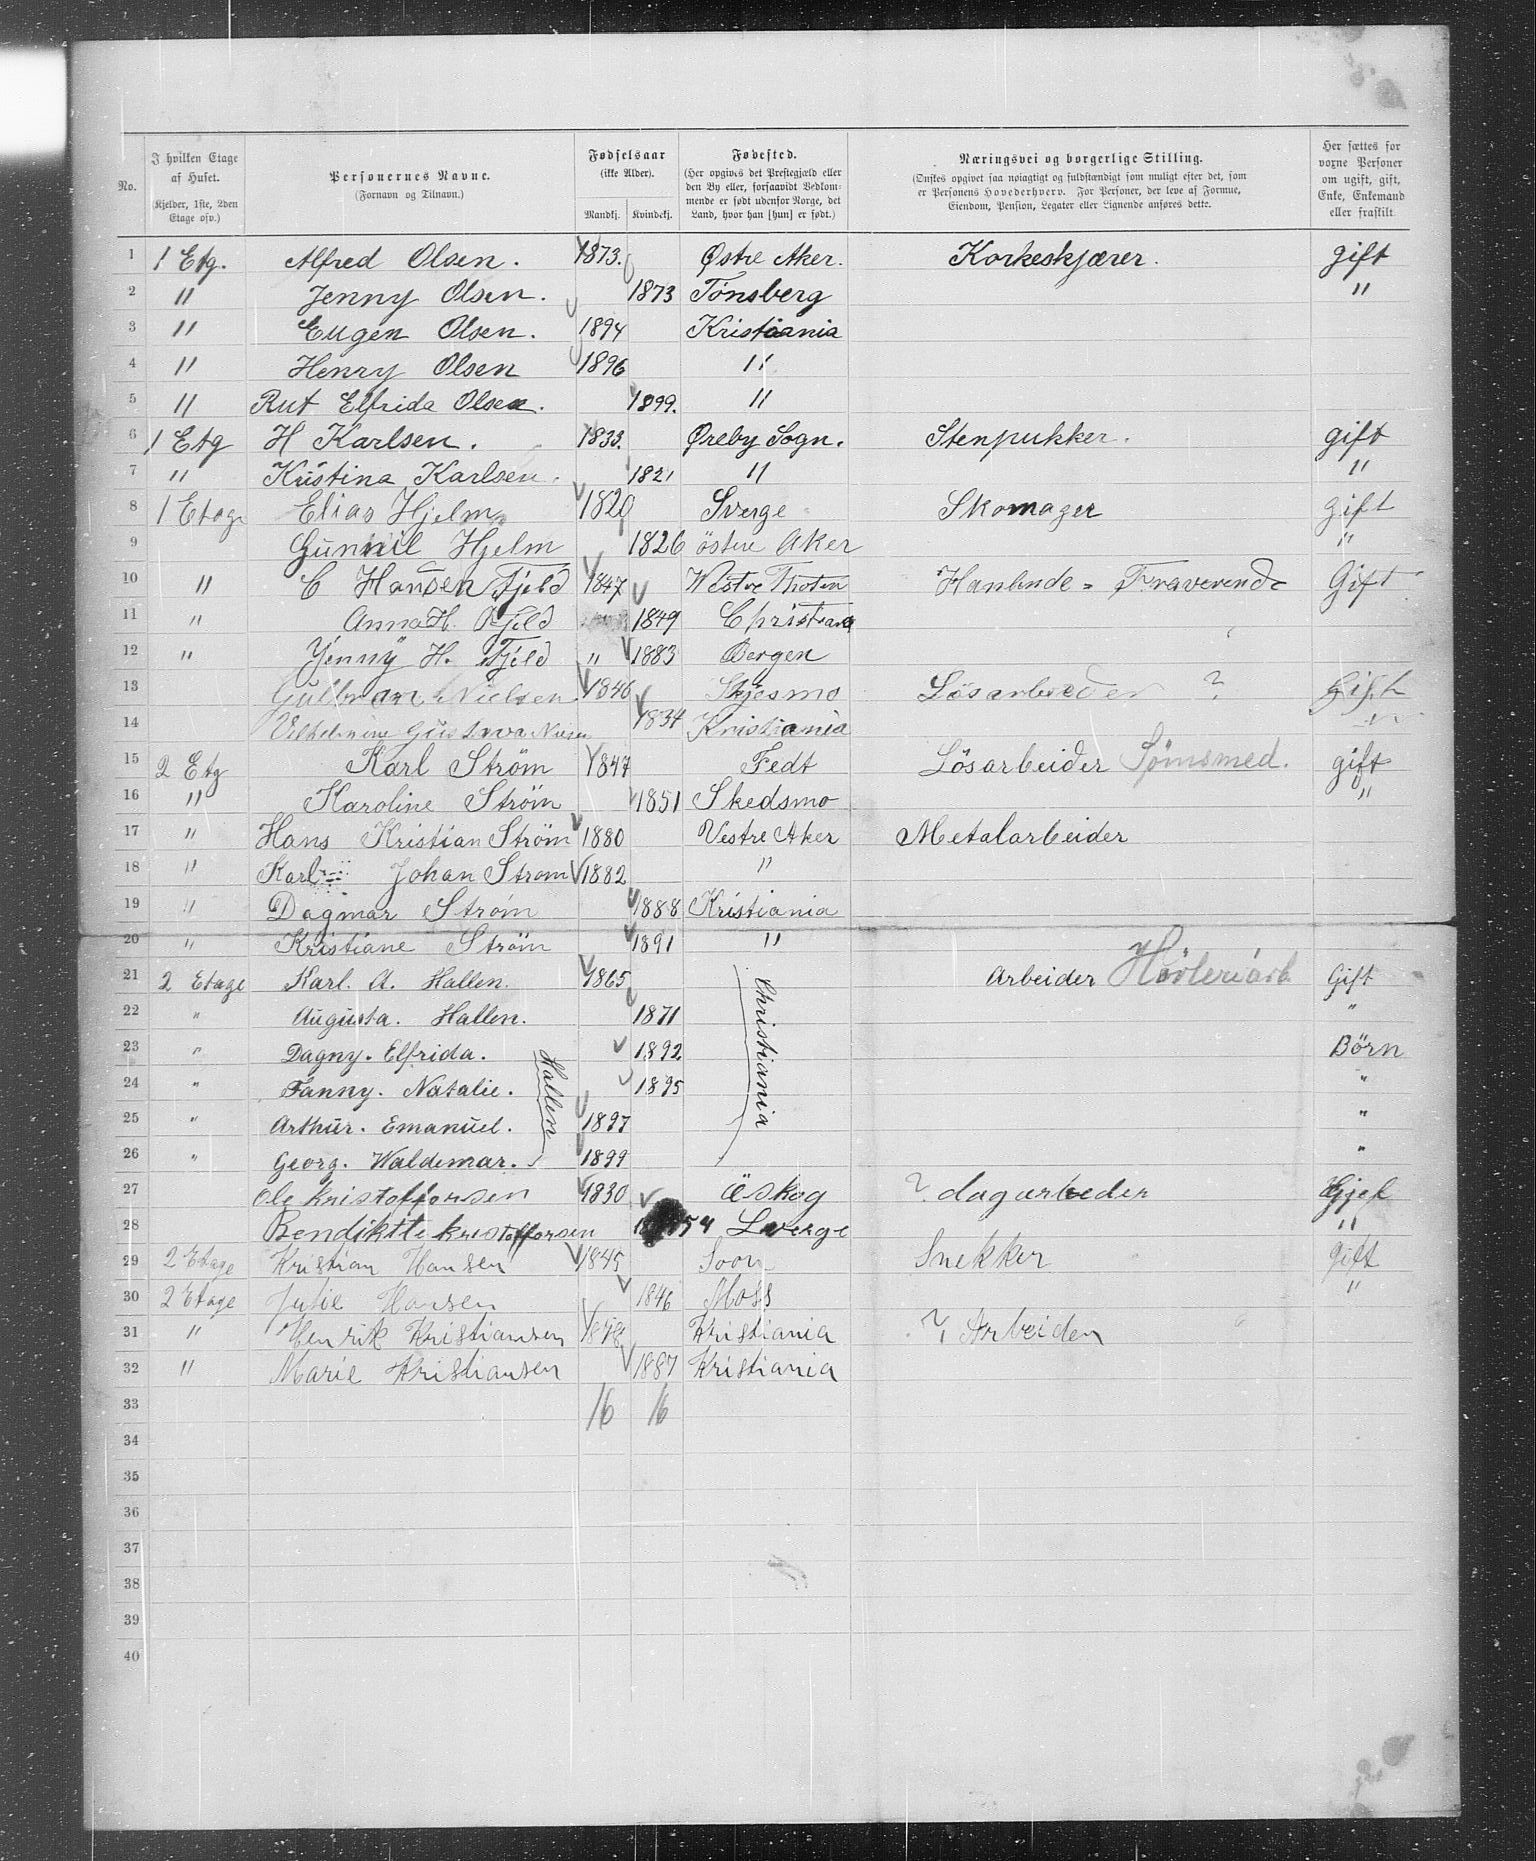 No.
I hvilken Etage af Huset.
(Kjelder, 1ste, 2den Etage osv.)
Personernes Navne.
(Fornavn og Tilnavn.)
Fødselsaar
(ikke Alder).
Mandkj. Kvindekj.
Fødested.
(Her opgives det Prestegjæld eller den By eller, forsaavidt Vedkommende er født udenfor Norge, det Land, hvor han [hun] er født.)
Næringsvei og borgerlige Stilling.
(Ønskes opgivet saa nøiagtigt og fuldstændigt som muligt efter det, som er Personens Hovederhverv. For Personer, der leve af Formue, Eiendom, Pension, Legater eller Lignende anføres dette.
Her sættes for voxne Personer om ugift, gift, Enke, Enkemand eller fraskilt.
1 1 Etg. Alfred Olsen. 1873. Østre Aker. Korkeskjærer. gift
2 " Jenny Olsen. 1873 Tønsberg "
3 " Eugen Olsen. 1894 Kristiania
4 " Henry Olsen 1896 "
5 " Rut Elfrida Olsen. 1899. "
6 1 Etg H Karlsen. 1833. Øreby Sogn. Stenpukker. gift
7 " Kristina Karlsen. 1821 " "
8 1 Etage Elias Hjelm 1820 Sverge Skomager gift
9 Gunnil Hjelm 1826 östre Aker "
10 " C Hansen Fjeld 1847 Westre Thoten Hanlende = Fraverende Gift
11 " Anna H. Fjeld 1849 Christiana
12 " Jenny H. Fjeld " 1883 Bergen
13 Gulbran Nielsen 1846 Skjesmo Lösarbeder ? Gift
14 Vilhelmine Gustava 1834 Kristiania "
15 2 Etg Karl Ström 1847 Fedt Lösarbeider Sømsmed. gift
16 " Karoline Ström 1851 Skedsmo "
17 " Hans Kristian Ström 1880 Vestre Aker Metalarbeider
18 " Karl Johan Strøm 1882 "
19 " Dagmar Strøm 1888 Kristiania
20 " Kristiane Ström 1891 "
21 2 Etage Karl. A. Hallen. 1865 Christiania Arbeider Gift
22 " Augusta. Hallen. 1871 "
23 " Dagny. Elfrida. Hallen 1892 Börn
24 " Fanny. Natalie. 1895 "
25 " Arthur. Emanuel. 1897 "
26 " Georg. Waldemar. 1899 "
27 Ole Kristoffersen 1830 äskog ? dagarbeder Gjef
28 Bendiktte kristoffersen 54 Sverge "
29 2 Etage Kristian Hansen 1845 Soon Snekker gift
30 2 Etage Julie Hansen 1846 Moss "
31 " Henrik Kristiansen 1878 Kristiania ? Arbeiden
32 " Marie Kristiansen 1887 Kristiania
33 16 16
34
35
36
37
38
39
40